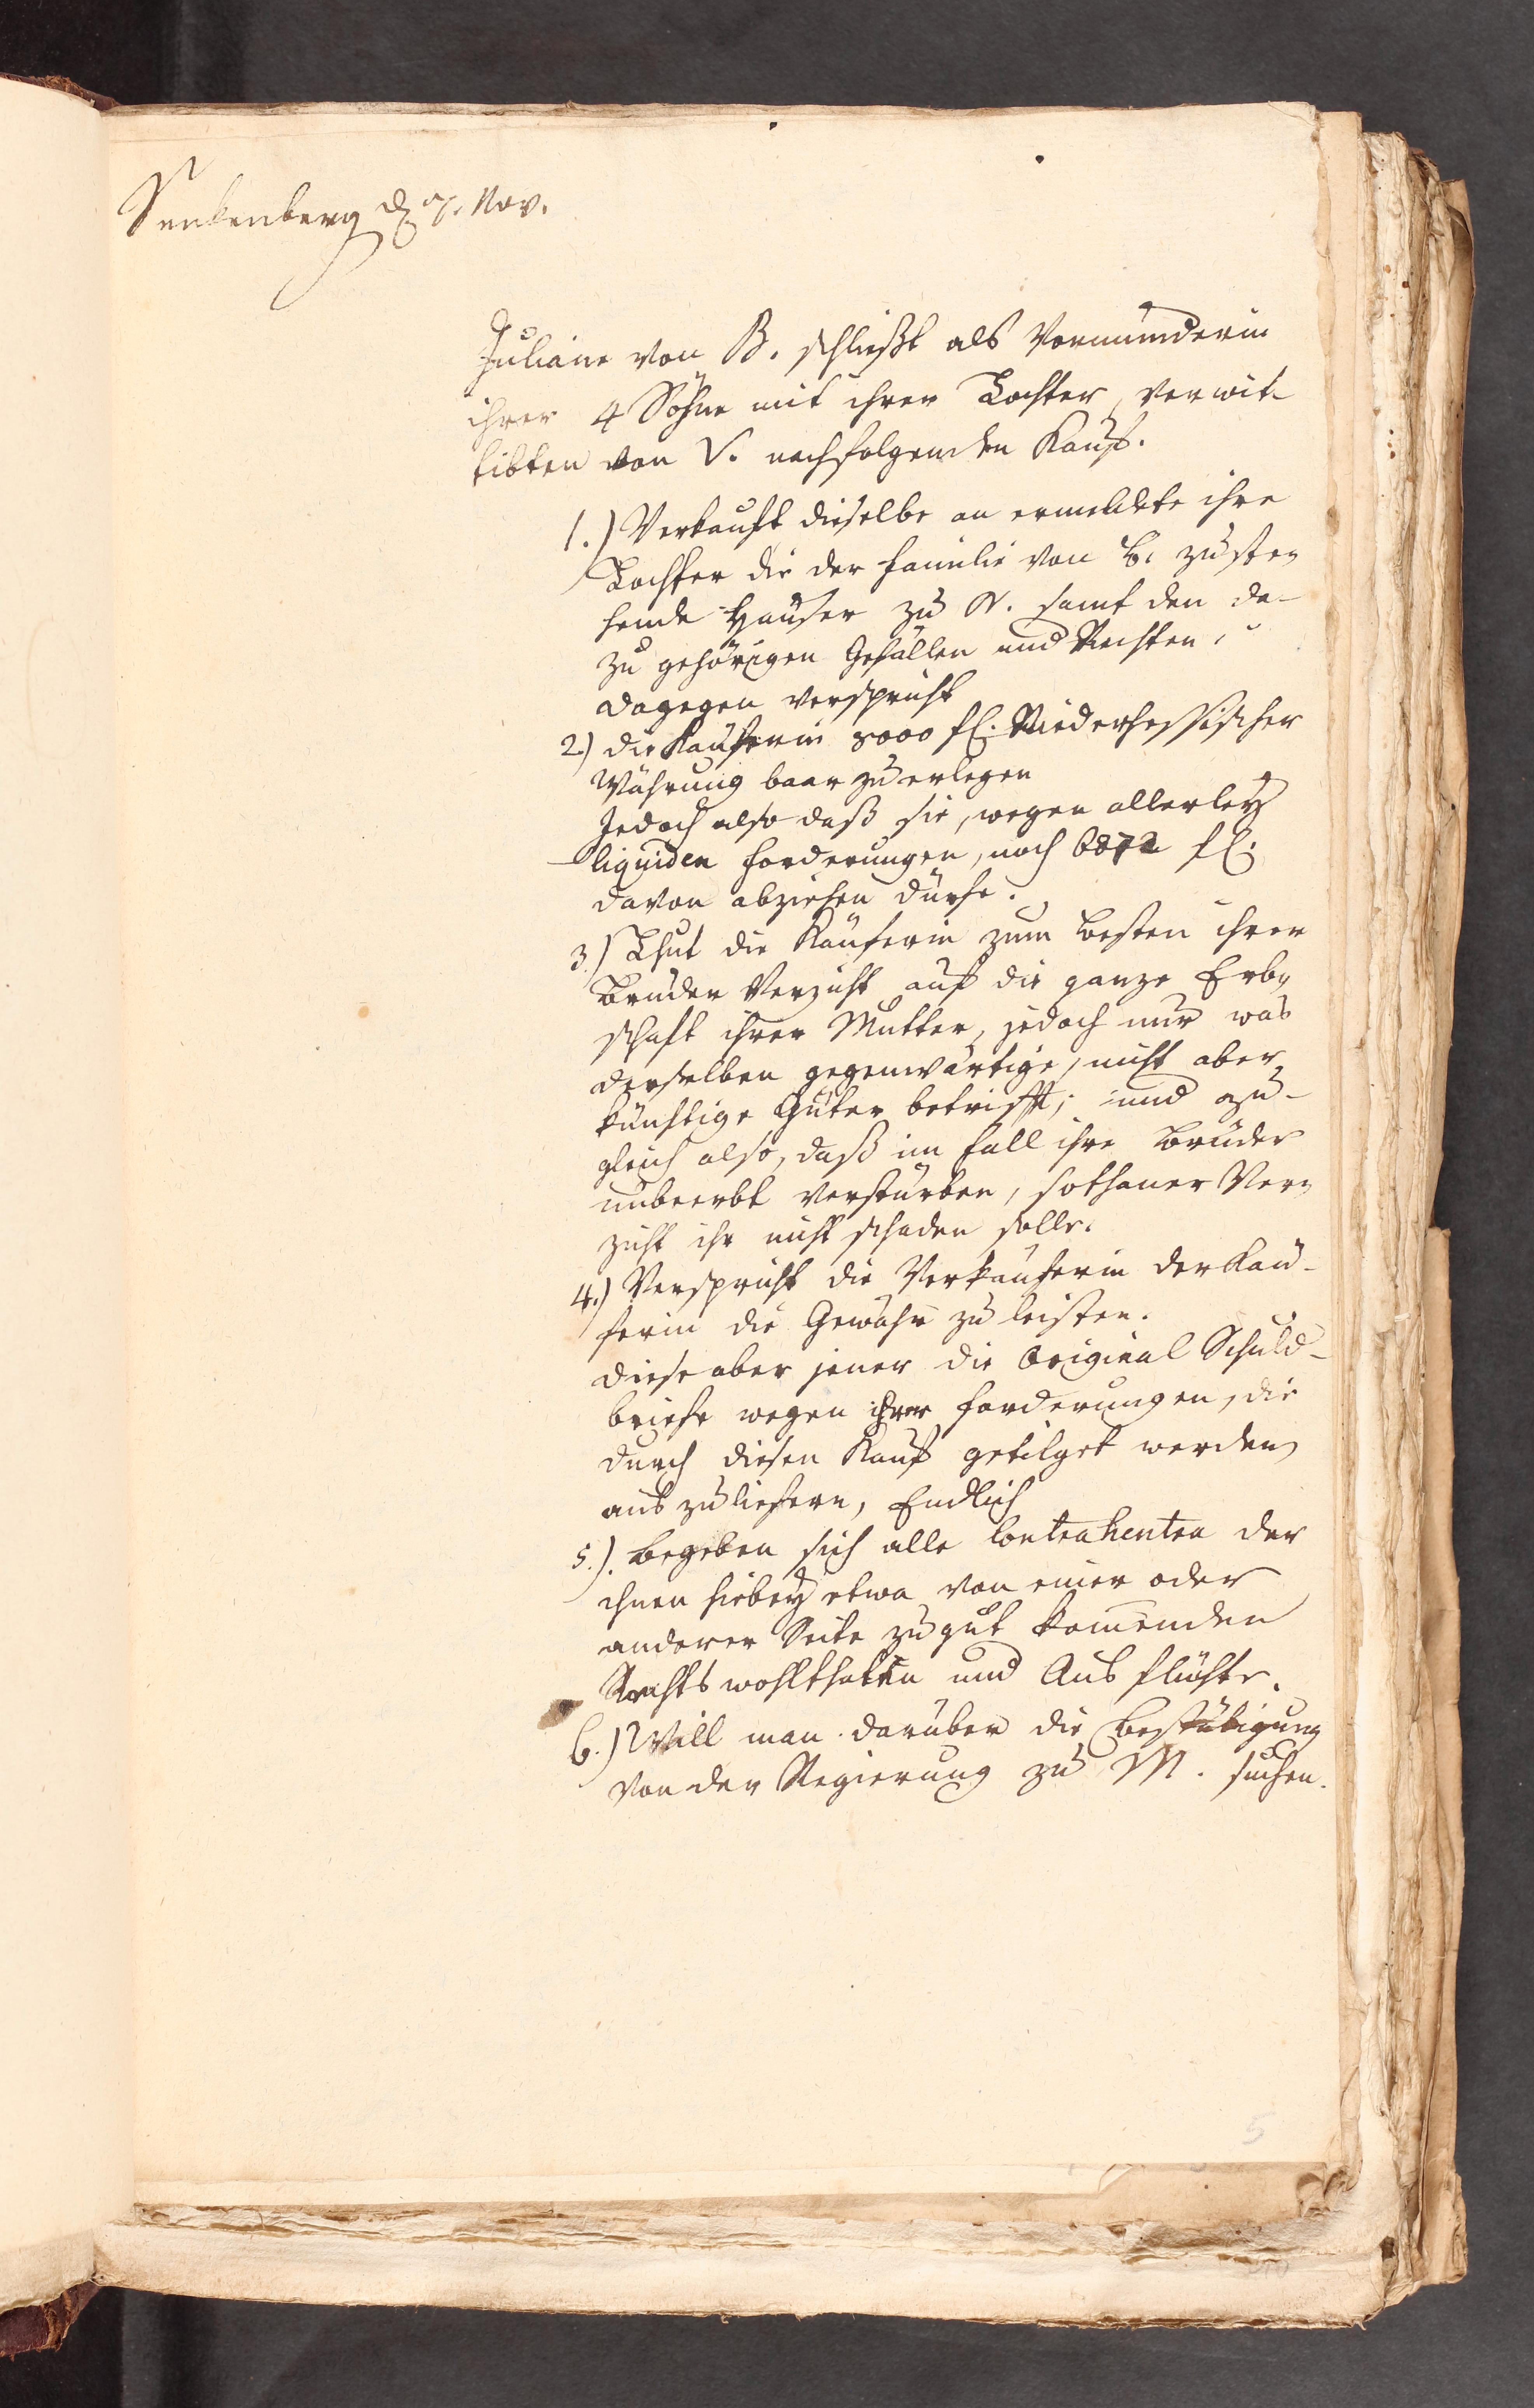 Senkenberg d. 7. Nov.
Juliane von B. schließt als Vormünderin
ihrer 4 Söhne mit ihrer Tochter, verwit-
tibten von V. nachfolgenden Kauf.
1.) Verkauft dieselbe an ermeldete ihre
Tochter die der Familie von B. zuste-
hende Häuser zu N. samt den da-
zu gehörigen Gefällen und Rechten,
dagegen verspricht
2.) die Käuferin 8000 fl. Niederhessischer
Währung baar zu erlegen
Jedoch also daß sie, wegen allerley
liquiden Forderungen, noch 6872 fl.
davon abziehen dürfe.
3.) Thut die Käuferin zum Besten ihrer
Brüder Verzicht auf die ganze Erb-
schaft ihrer Mutter, jedoch nur was
derselben gegenwärtige, nicht aber
künftige Güter betrifft; und zu-
gleich also, daß im Fall ihre Brüder
unbeerbt verstürben, sothaner Ver-
zicht ihr nicht schaden solle.
4.) Verspricht die Verkäuferin der Käu-
ferin die Gewähr zu leisten.
diese aber jener die Original Schuld-
briefe wegen ihrer Forderungen, die
durch diesen Kauf getilget werden
aus zu liefern, Endlich
5.). Begeben sich alle Contrahenten der
ihnen hiebey etwa von einer oder
anderer Seite zu gut komenden
Rechtswohlthaten und Ausflüchte.
6.) Will man darüber die Bestätigung
von der Regierung zu M. suchen.
5